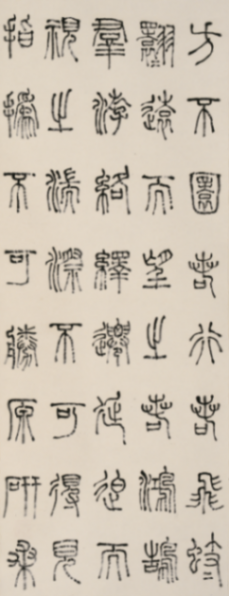 方不圓若行若飛蚑
翾遠而望之若鴻鵠
羣游絡繹遷延迫而
視之湍漈不可得見
指撝不可勝原研桑